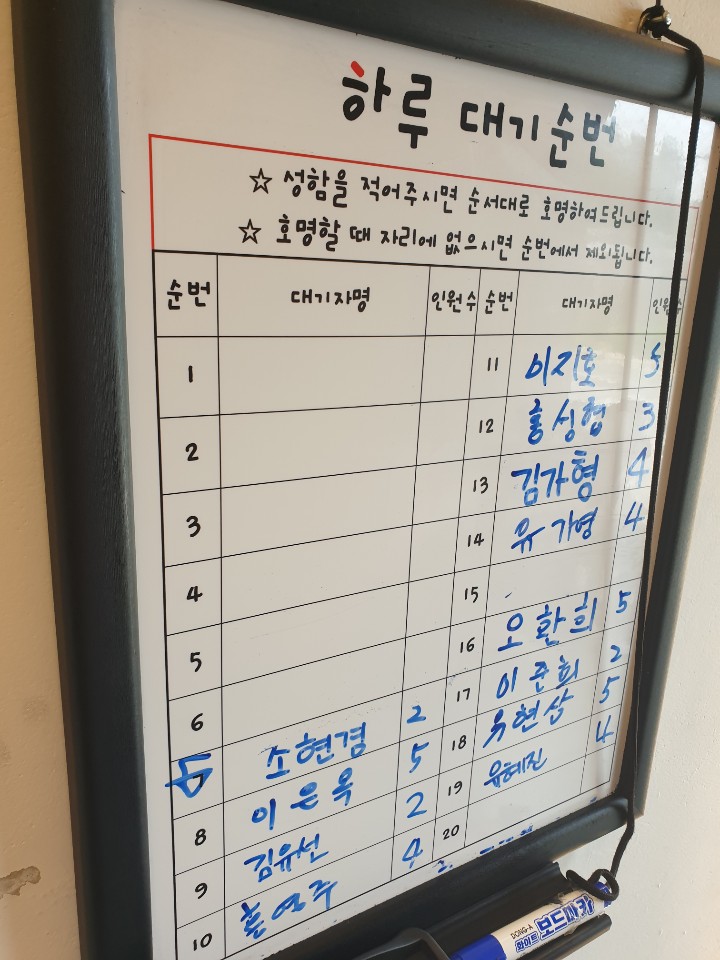 하루 대기순번
☆ 성함을 적어주시면 순서대로 호명하여드립니다.
☆ 호명할 때 자리에 없으시면 순번에서 제외됩니다.
순번 대기자명 인원수 순번 대기자명 인원수
1 11 이지호 5
2 12 홍성협 3
3 13 김가형 4
4 14 유가영 4
5 15
6 16 오환희 5
7 소현경 2 17 이준희 2
8 이은옥 5 18 유현삼 5
9 김유선 2 19 유혜진 4
10 홍영주 4 20
DONG-A
화이트 보드마카